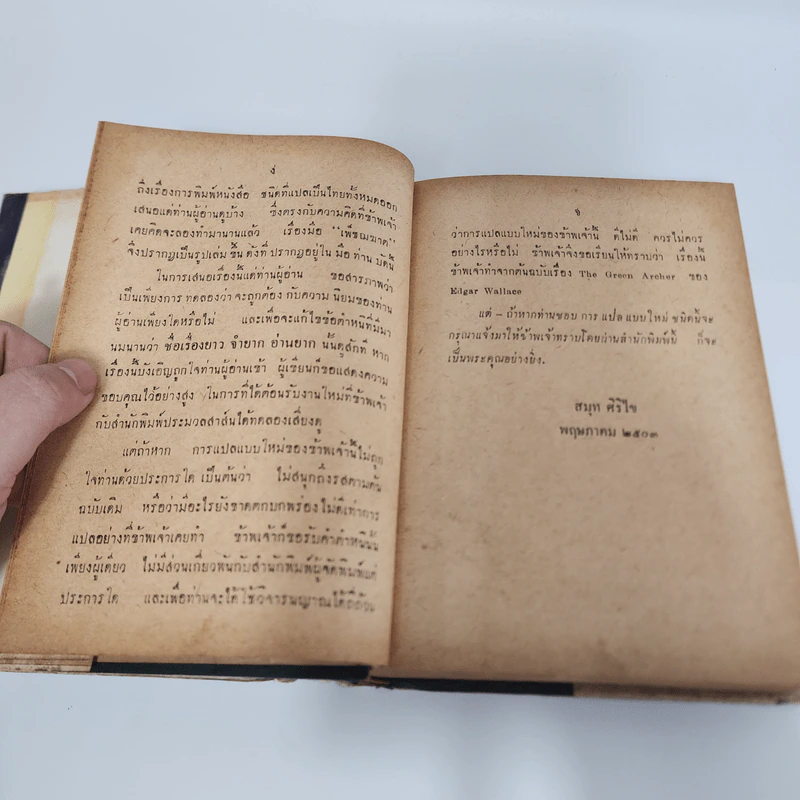 ง
ถึงเรื่องการพิมพ์หนังสือ ชนิดที่แปลเป็นไทยทั้งหมดออก
เสนอแด่ท่านผู้อ่านดูบ้าง ซึ่งตรงกับความคิดที่ข้าพเจ้า
เคยคิดจะลองทำมานานแล้ว เรื่องมือ "เพ็ชฌฆาต"
จึงปรากฏเป็นรูปเล่ม ขึ้น ดังที่ ปรากฏอยู่ใน มือ ท่าน บัดนี้
ในการเสนอเรื่องนี้แด่ท่านผู้อ่าน ขอสารภาพว่า
เป็นเพียงการ ทดลองว่า จะถูกต้อง กับความ นิยมของท่าน
ผู้อ่านเพียงใดหรือไม่ และเพื่อจะแก้ไขข้อตำหนิที่มีมา
นมนานว่า ชื่อเรื่องยาว จำยาก อ่านยาก นั้นดูสักที หาก
เรื่องนี้บังเอิญถูกใจท่านผู้อ่านเข้า ผู้เขียนก็ขอแสดงความ
ขอบคุณไว้อย่างสูง ในการที่ได้ต้อนรับงานใหม่ที่ข้าพเจ้า
กับสำนักพิมพ์ประมวลสาส์นได้ทดลองเสี่ยงดู
แต่ถ้าหาก การแปลแบบใหม่ของข้าพเจ้านี้ไม่ถูก
ใจท่านด้วยประการใด เป็นต้นว่า ไม่สนุกถึงรสตามต้น
ฉบับเดิม หรือว่ามีอะไรยังขาดตกบกพร่องไม่ดีเท่าการ
แปลอย่างที่ข้าพเจ้าเคยทำ ข้าพเจ้าก็ขอรับคำตำหนินั้น
เพียงผู้เดียว ไม่มีส่วนเกี่ยวพันกับสำนักพิมพ์ผู้จัดพิมพ์แต่
ประการใด และเพื่อท่านจะได้ใช้วิจารณญาณได้ถี่ถ้วน
จ
ว่าการแปลแบบใหม่ของข้าพเจ้านี้ ดีไม่ดี ควรไม่ควร
อย่างไรหรือไม่ ข้าพเจ้าจึงขอเรียนให้ทราบว่า เรื่องนี้
ข้าพเจ้าทำจากต้นฉบับเรื่อง The Green Archer ของ
Edgar Wallace
แต่ – ถ้าหากท่านชอบ การ แปล แบบใหม่ ชนิดนี้จะ
กรุณาแจ้งมาให้ข้าพเจ้าทราบโดยผ่านสำนักพิมพ์นี้ ก็จะ
เป็นพระคุณอย่างยิ่ง.
สมุท ศิริไข
พฤษภาคม ๒๕๐๓